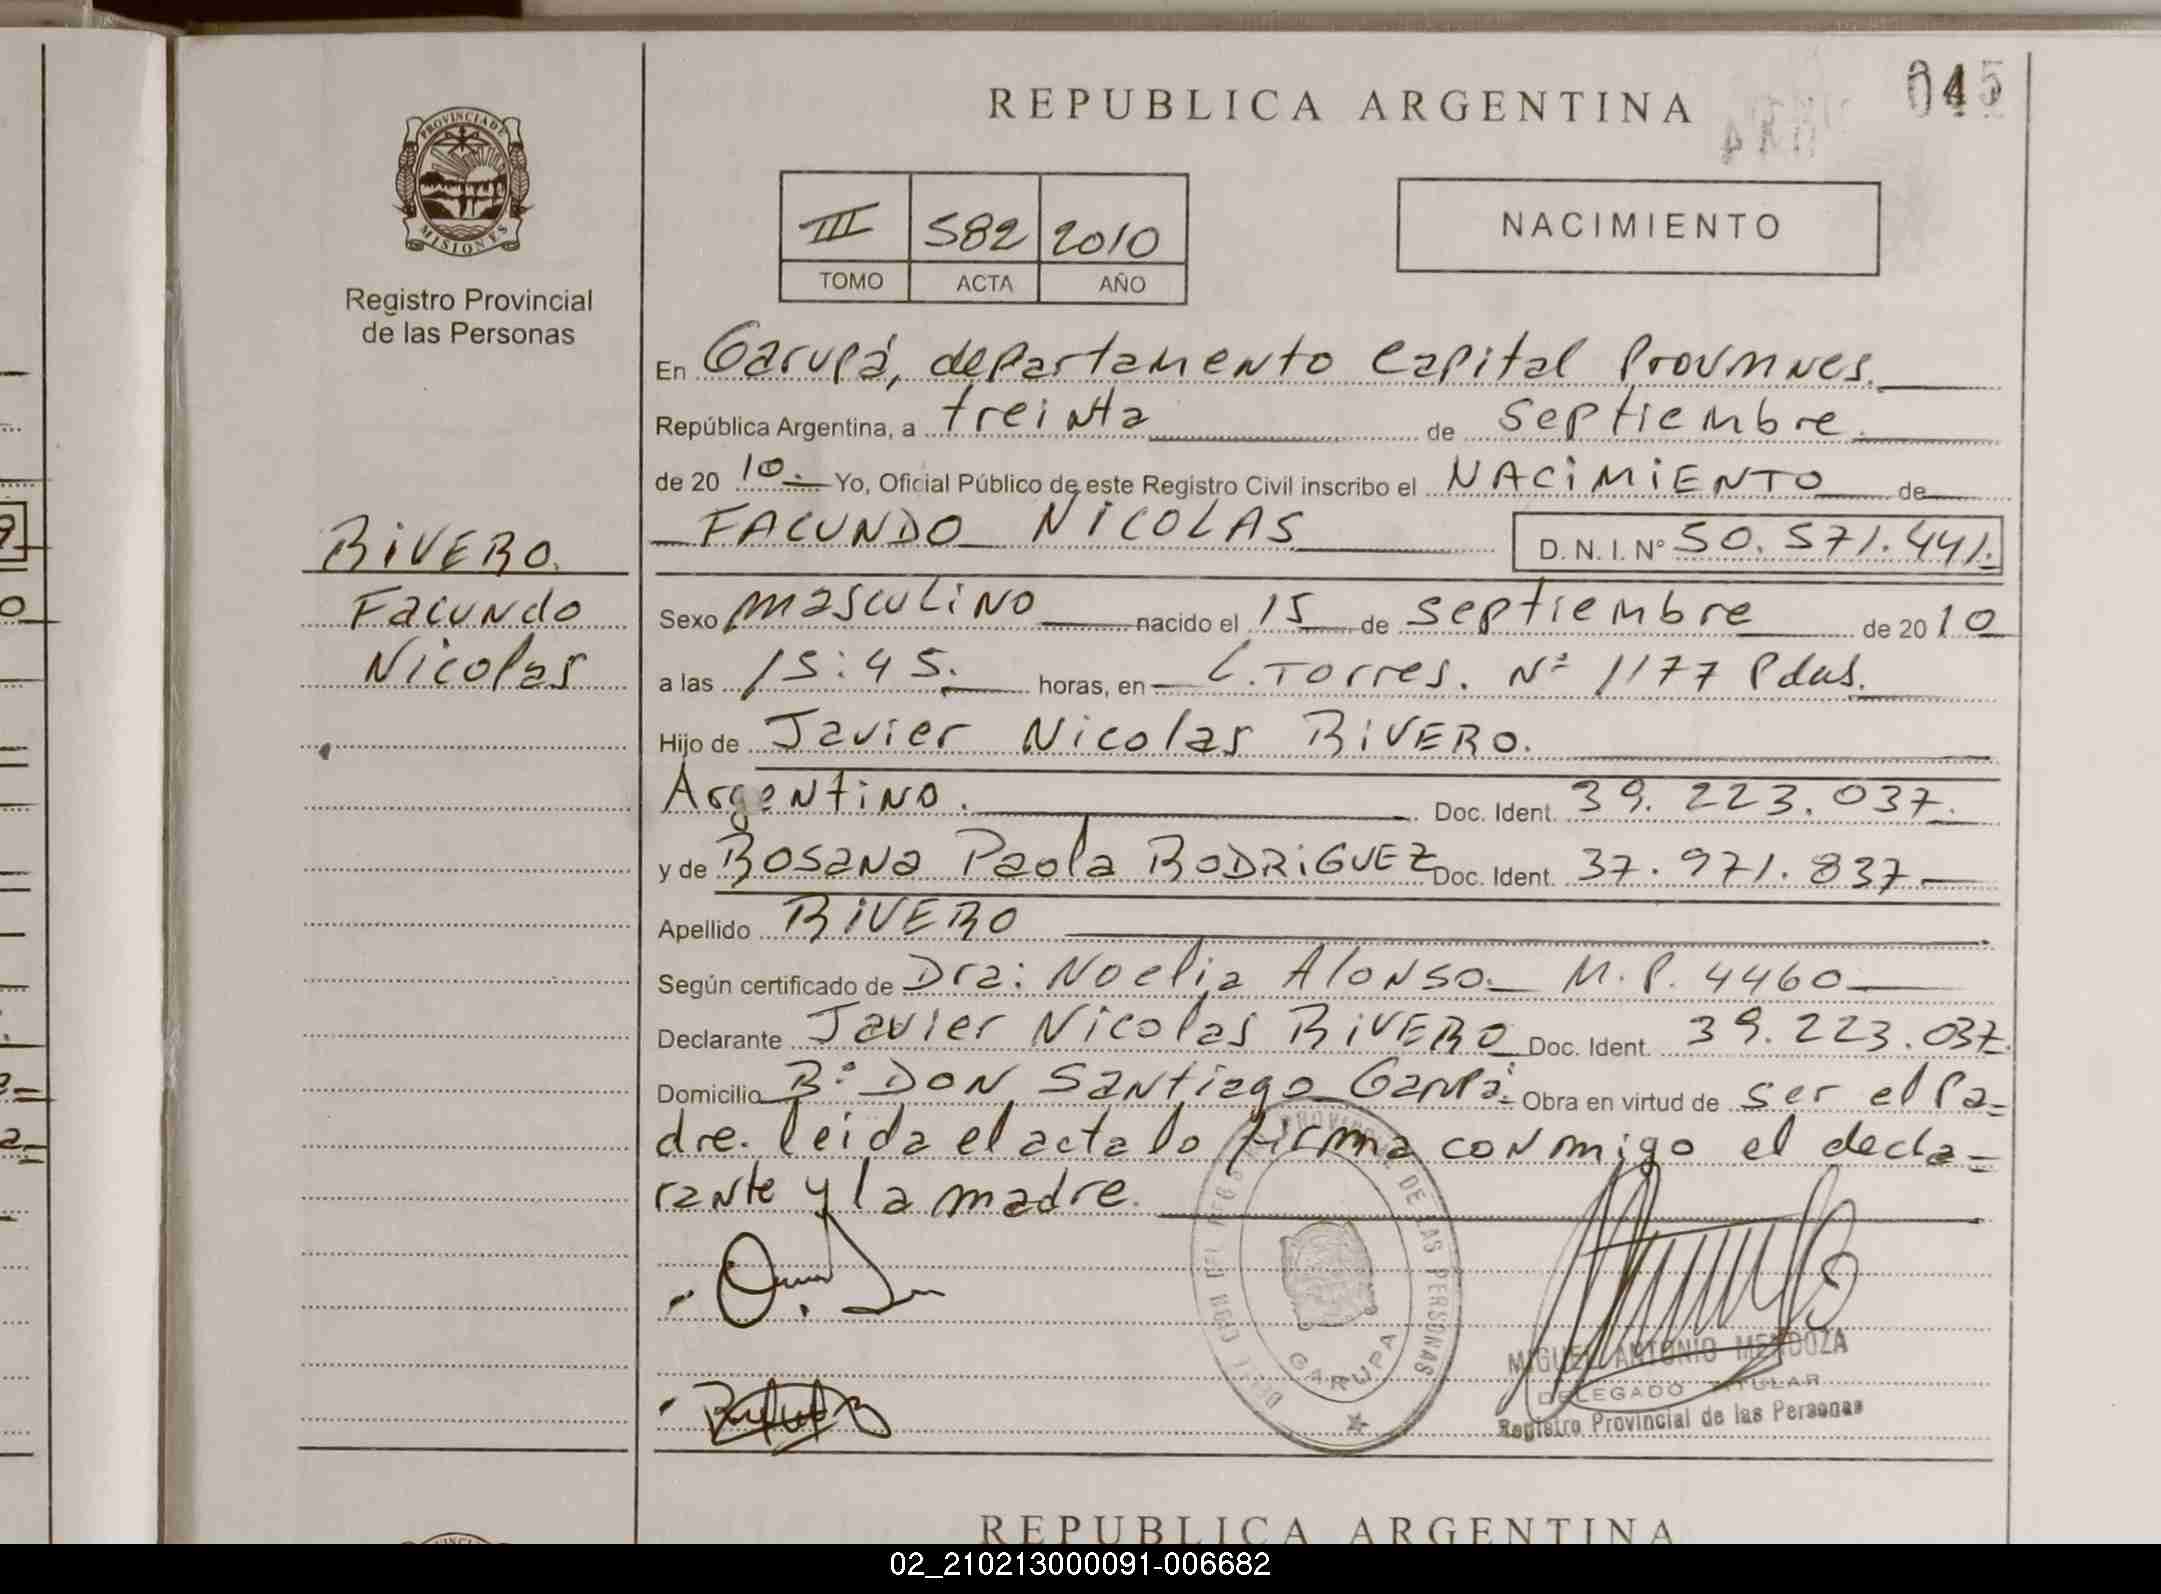 REPUBLICA ARGENTINA
045
PROVINCIA DE
MISIONES
Registro Provincial
de las Personas
III 582 2010
TOMO ACTA AÑO
NACIMIENTO
En Garupá, departamento Capital
República Argentina, a treinta de septiembre
de 2010. Yo, Oficial Público de este Registro Civil inscribo el NACIMIENTO de
FACUNDO NICOLAS D. N. I. Nº 50.571.441.
RIVERO.
Facundo
Nicolas
Sexo masculino nacido el 15 de septiembre de 2010
a las 15:45. horas, en L. Torres. Nº 1177 Pdas.
Hijo de Javier Nicolas RIVERO.
Argentino. Doc. Ident. 39.223.037.
y de Rosana Paola RODRIGUEZ Doc. Ident. 37.971.837
Apellido RIVERO
Según certificado de Dra: Noelia Alonso. M.P. 4460
Declarante Javier Nicolas RIVERO Doc. Ident. 39.223.037.
Domicilio Bº DON Santiago Garupá. Obra en virtud de ser el Pa=
dre. leida el acta lo firma conmigo el decla=
rante y la madre.
PROVINCIAL DE LAS PERSONAS
GARUPA
MIGUEL ANTONIO MENDOZA
DELEGADO TITULAR
Registro Provincial de las Personas
REPUBLICA ARGENTINA
02_210213000091-006682